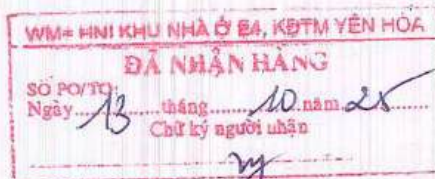 WM+ HNI KHU NHÀ Ở E4, KĐTM YÊN HÒA
ĐÃ NHẬN HÀNG
SỐ PO/TO
Ngày 13 tháng 10 năm 25
Chữ ký người nhận